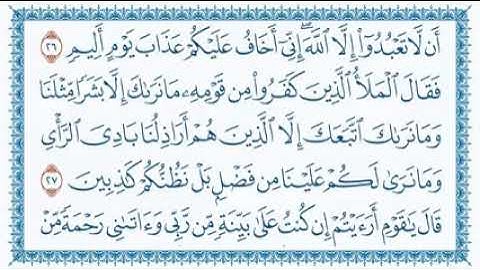 أَن لَّا تَعْبُدُوٓا۟ إِلَّا ٱللَّهَ ۖ إِنِّىٓ أَخَافُ عَلَيْكُمْ عَذَابَ يَوْمٍ أَلِيمٍ ٢٦
فَقَالَ ٱلْمَلَأُ ٱلَّذِينَ كَفَرُوا۟ مِن قَوْمِهِۦ مَا نَرَىٰكَ إِلَّا بَشَرًا مِّثْلَنَا
وَمَا نَرَىٰكَ ٱتَّبَعَكَ إِلَّا ٱلَّذِينَ هُمْ أَرَاذِلُنَا بَادِىَ ٱلرَّأْىِ
وَمَا نَرَىٰ لَكُمْ عَلَيْنَا مِن فَضْلٍۭ بَلْ نَظُنُّكُمْ كَـٰذِبِينَ ٢٧
قَالَ يَـٰقَوْمِ أَرَءَيْتُمْ إِن كُنتُ عَلَىٰ بَيِّنَةٍ مِّن رَّبِّى وَءَاتَىٰنِى رَحْمَةً مِّنْ